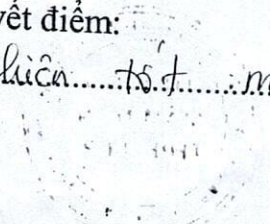 yết điểm:
hiện......tốt......m